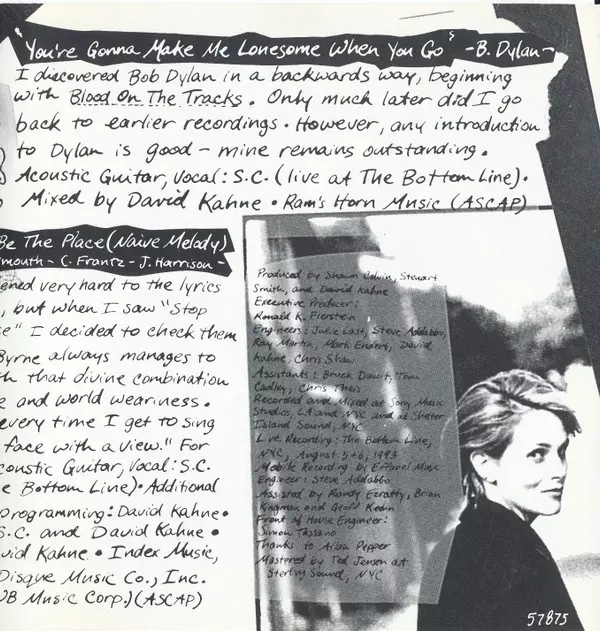 "You're Gonna Make Me Lonesome When You Go" -B. Dylan-
I discovered Bob Dylan in a backwards way, beginning
with Blood On The Tracks. Only much later did I go
back to earlier recordings. However, any introduction
to Dylan is good - mine remains outstanding.
Acoustic Guitar, Vocal: S.C. (live at The Bottom Line).
Mixed by David Kahne • Ram's Horn Music (ASCAP)
Be The Place (Naive Melody)
mouth - C. Frantz - J. Harrison -
ened very hard to the lyrics
, but when I saw "Stop
e" I decided to check them
Byrne always manages to
h that divine combination
e and world weariness.
every time I get to sing
face with a view." For
coustic Guitar, Vocal: S.C.
e Bottom Line) • Additional
programming: David Kahne •
S.C. and David Kahne •
vid Kahne • Index Music,
Disque Music Co., Inc.
WB Music Corp.) (ASCAP)
Produced by Shawn Colvin, Steuart
Smith, and David Kahne
Executive Producer:
Ronald K. Fierstein
Engineers: Julie Last, Steve Addabbo,
Ray Martin, Mark Endert, David
Kahne, Chris Shaw
Assistants: Brock Tom
Cadley, Chris Theis
Recorded and Mixed at Sony Music
Studios, LA and NYC and at Shelter
Island Sound, NYC
Live Recording: The Bottom Line,
NYC, August 5+6, 1993
Mobile Recording by Effanel Music
Engineer: Steve Addabbo
Assisted by Randy Ezratty, Brian
Kingman and Geoff Keehn
Front of House Engineer:
Simon Tassano
Thanks to Allan Pepper
Mastered by Ted Jensen at
Sterling Sound, NYC
57875